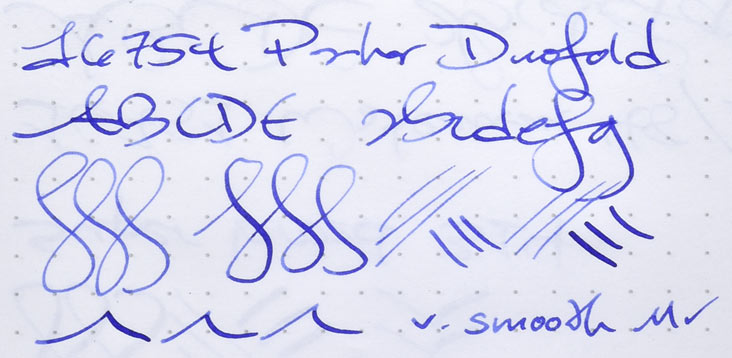 16754 Parker Duofold
ABCDE abcdefg
v. smooth